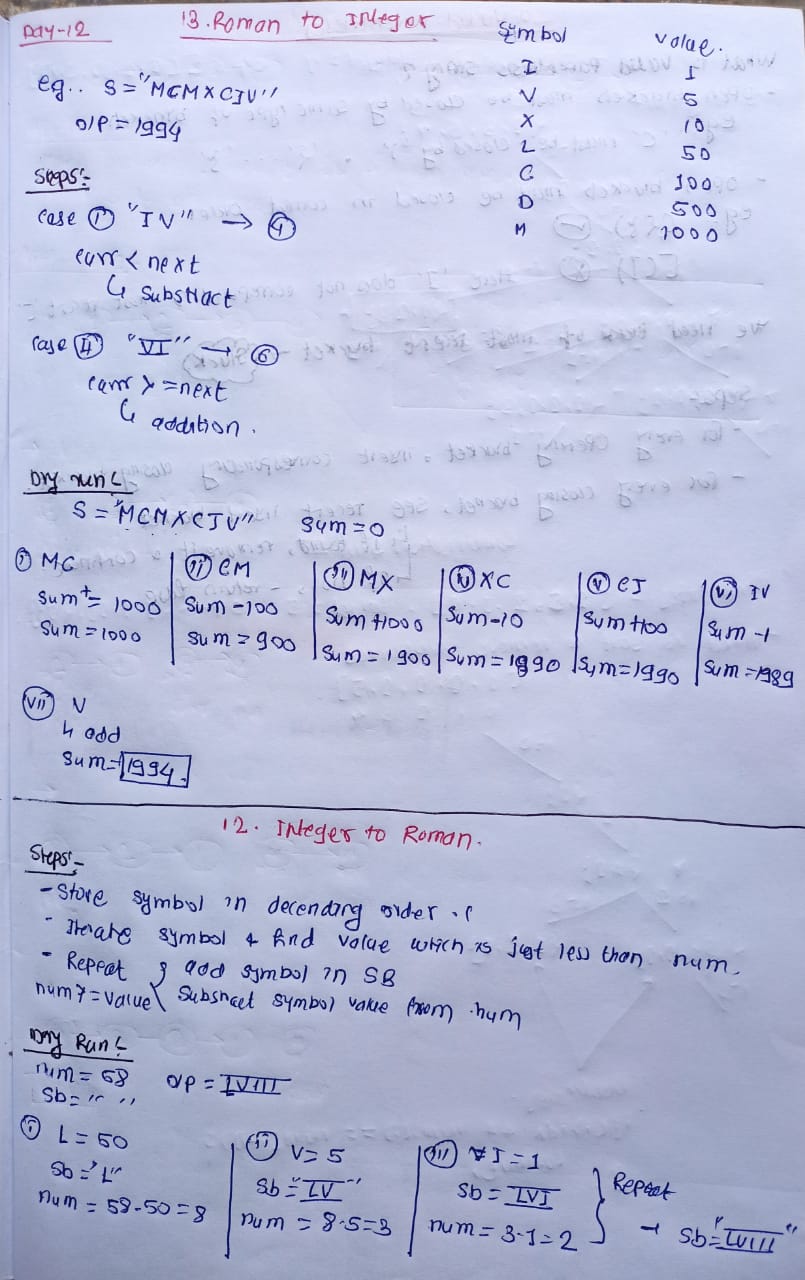 Day-12
13. Roman to Integer
Symbol value.
I 1
V 5
X 10
L 50
C 100
D 500
M 1000
eg.. S = "MCMXCIV"
O/P = 1994
Steps:-
case (i) "IV" → (4)
curr < next
↳ substract
case (ii) "VI" → (6)
curr >= next
↳ addition.
Dry run:
S = "MCMXCIV" sum = 0
(i) MC
sum += 1000
sum = 1000
(ii) CM
sum - 100
sum = 900
(iii) MX
sum + 1000
sum = 1900
(iv) XC
sum - 10
sum = 1890
(v) CI
sum + 100
sum = 1990
(vi) IV
sum - 1
sum = 1989
(vii) V
↳ add
sum = 1994.
12. Integer to Roman.
Steps:-
- Store symbol in decending order.
- Iterate symbol & find value which is just less than num.
- Repeat { add symbol in SB
num >= value { Substract symbol value from num
Dry Run:
num = 58 O/P = LVIII
Sb = " "
(i) L = 50
Sb = "L"
num = 58-50 = 8
(ii) V = 5
Sb = "LV"
num = 8-5 = 3
(iii) I = 1
Sb = LVI
num = 3-1 = 2
} Repeat
→ Sb = "LVIII"